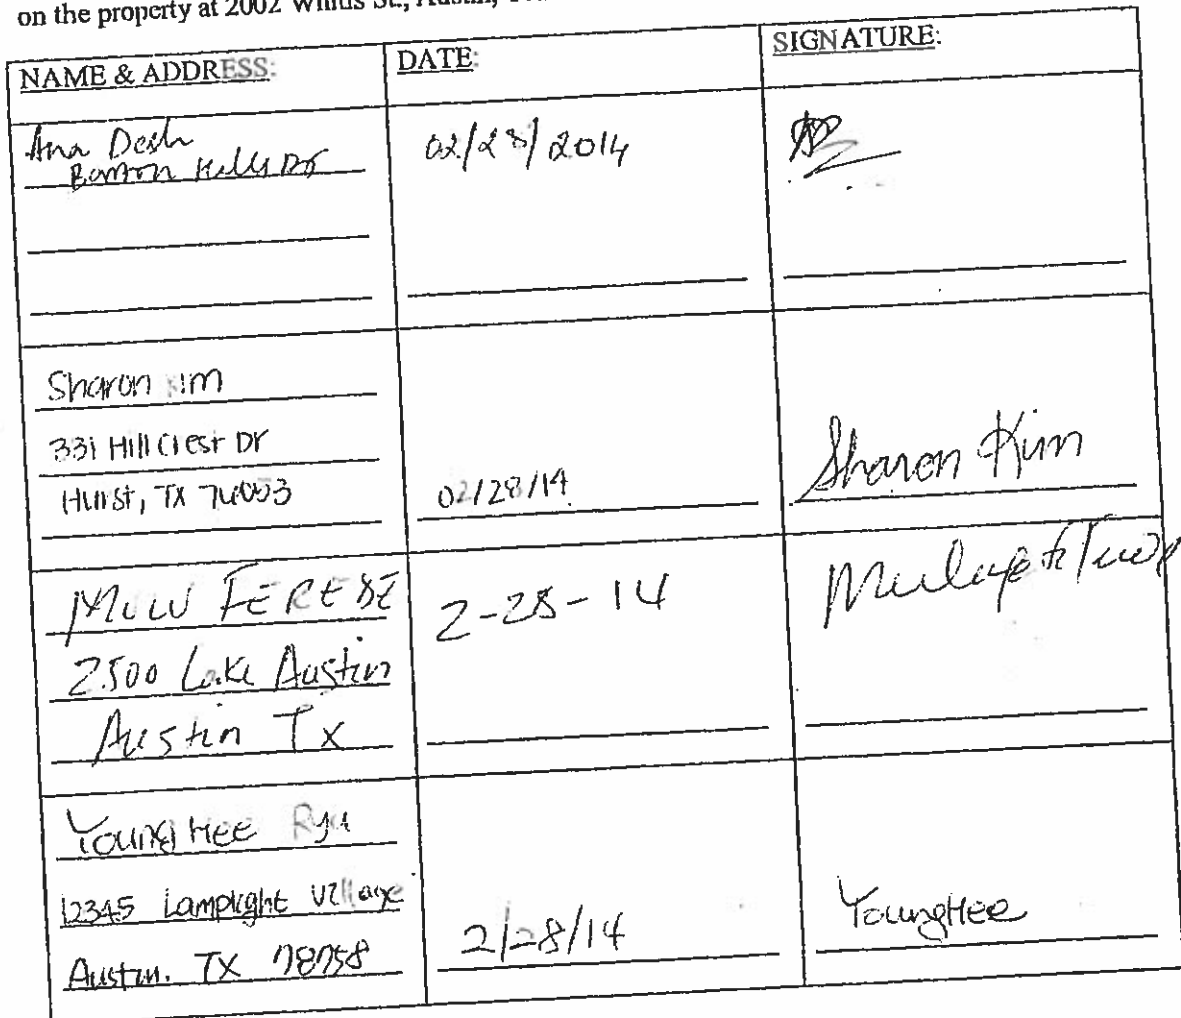 on the property at 2002 Whitis St., Austin,
NAME & ADDRESS:
DATE:
SIGNATURE:
Ana Desh
Barton Hills Dr
02/28/2014
Sharon Kim
331 Hillcrest Dr
Hurst, TX 76053
02/28/14
Sharon Kim
2500 Lake Austin
Austin Tx
2-28-14
YoungHee Ryu
12345 Lamplight Village
Austin. TX 78758
2/28/14
YoungHee